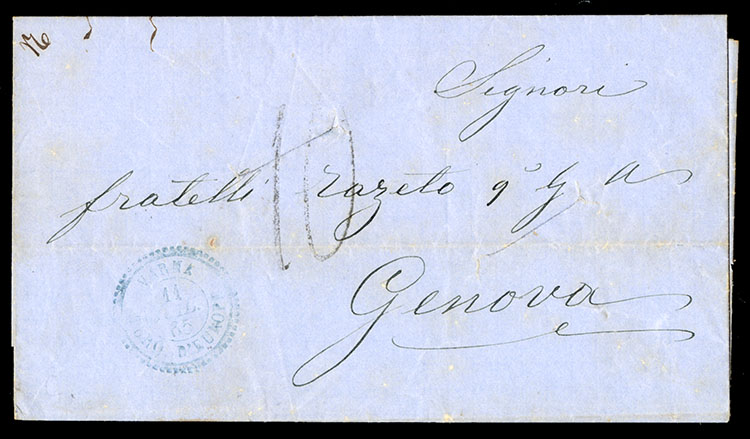 Signori
fratelli razeto q° G a
Genova
10
VARNA
11
65
D'EUROP